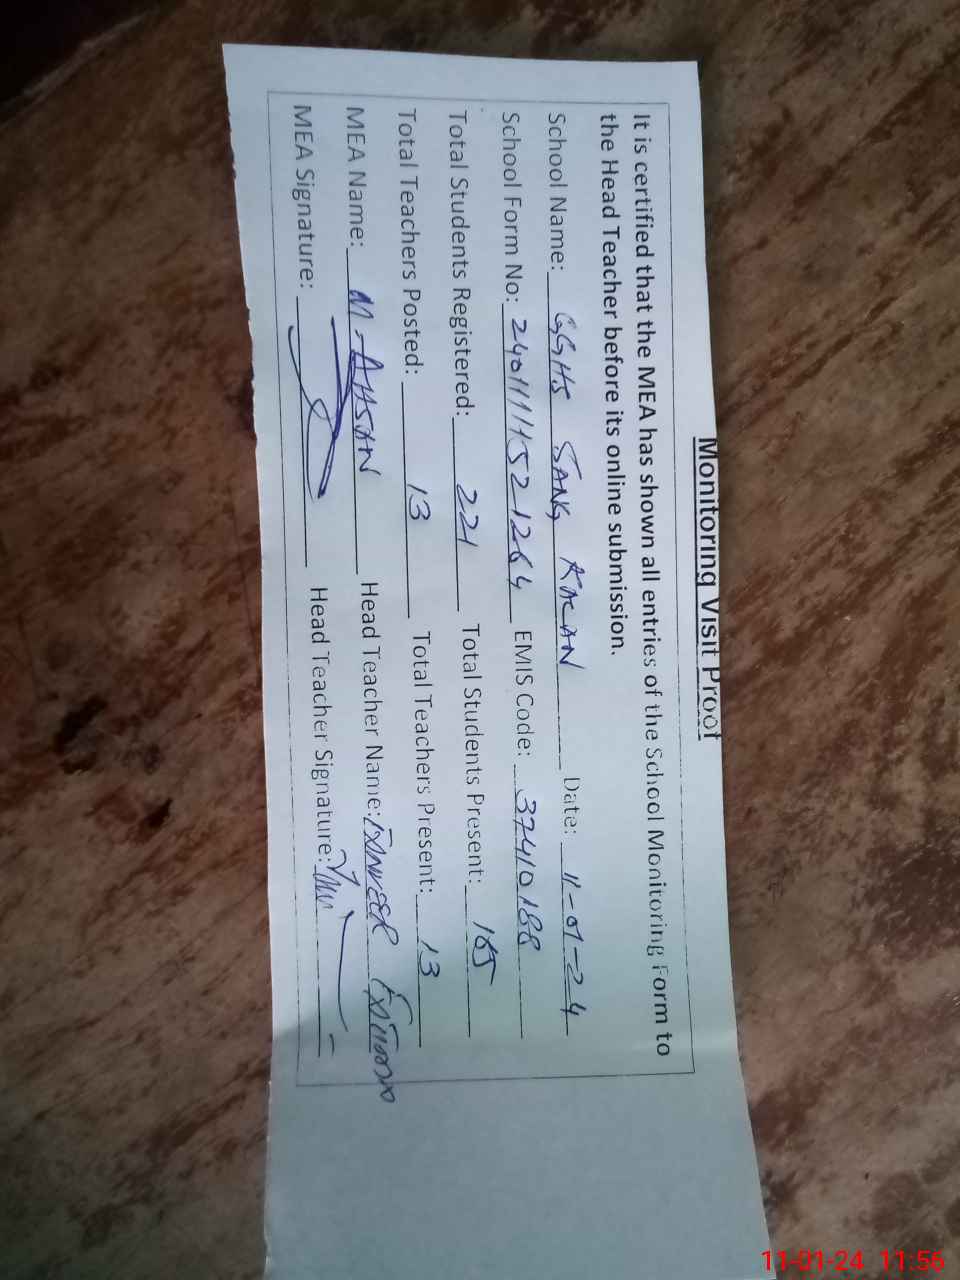 Monitoring Visit Proof
It is certified that the MEA has shown all entries of the School Monitoring Form to
the Head Teacher before its online submission.
School Name: GGHS SANG KALAN Date: 11-01-24
School Form No: EMIS Code: 37410188
Total Students Registered: 221 Total Students Present: 185
Total Teachers Posted: 13 Total Teachers Present: 13
MEA Name: M. AHSAN Head Teacher Name:
MEA Signature: Head Teacher Signature:
11-01-24 11:56